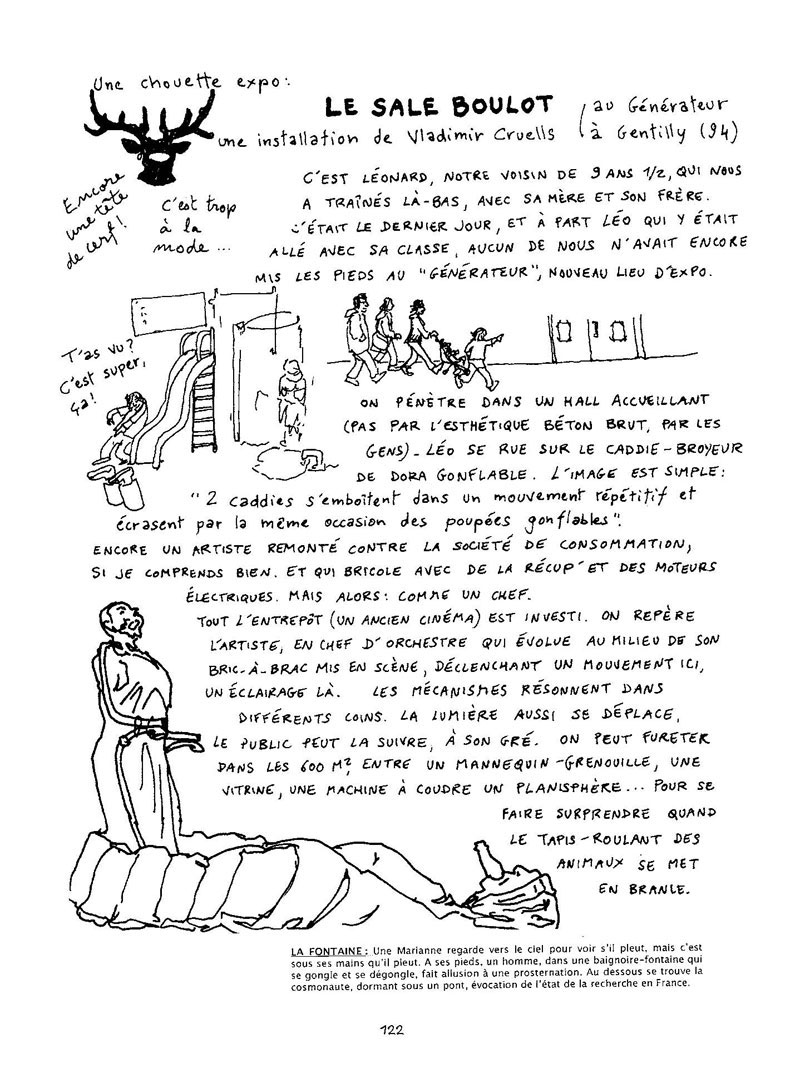 Une chouette expo:
LE SALE BOULOT
au Générateur
à Gentilly (94)
une installation de Vladimir Cruells
Encore
une tête
de cerf!
C'est trop
à la
mode...
C'EST LÉONARD, NOTRE VOISIN DE 9 ANS 1/2, QUI NOUS
A TRAÎNÉS LÀ-BAS, AVEC SA MÈRE ET SON FRÈRE.
C'ÉTAIT LE DERNIER JOUR, ET À PART LÉO QUI Y ÉTAIT
ALLÉ AVEC SA CLASSE, AUCUN DE NOUS N'AVAIT ENCORE
MIS LES PIEDS AU "GÉNÉRATEUR", NOUVEAU LIEU D'EXPO.
T'as vu?
C'est super,
ça!
ON PÉNÈTRE DANS UN HALL ACCUEILLANT
(PAS PAR L'ESTHÉTIQUE BÉTON BRUT, PAR LES
GENS). LÉO SE RUE SUR LE CADDIE-BROYEUR
DE DORA GONFLABLE. L'IMAGE EST SIMPLE:
"2 caddies s'emboîtent dans un mouvement répétitif et
écrasent par la même occasion des poupées gonflables".
ENCORE UN ARTISTE REMONTÉ CONTRE LA SOCIÉTÉ DE CONSOMMATION,
SI JE COMPRENDS BIEN. ET QUI BRICOLE AVEC DE LA RÉCUP' ET DES MOTEURS
ÉLECTRIQUES. MAIS ALORS: COMME UN CHEF.
TOUT L'ENTREPÔT (UN ANCIEN CINÉMA) EST INVESTI. ON REPÈRE
L'ARTISTE, EN CHEF D'ORCHESTRE QUI ÉVOLUE AU MILIEU DE SON
BRIC-À-BRAC MIS EN SCÈNE, DÉCLENCHANT UN MOUVEMENT ICI,
UN ÉCLAIRAGE LÀ. LES MÉCANISMES RÉSONNENT DANS
DIFFÉRENTS COINS. LA LUMIÈRE AUSSI SE DÉPLACE,
LE PUBLIC PEUT LA SUIVRE, À SON GRÉ. ON PEUT FURETER
DANS LES 600 M², ENTRE UN MANNEQUIN-GRENOUILLE, UNE
VITRINE, UNE MACHINE À COUDRE UN PLANISPHÈRE... POUR SE
FAIRE SURPRENDRE QUAND
LE TAPIS-ROULANT DES
ANIMAUX SE MET
EN BRANLE.
LA FONTAINE: Une Marianne regarde vers le ciel pour voir s'il pleut, mais c'est
sous ses mains qu'il pleut. A ses pieds, un homme, dans une baignoire-fontaine qui
se gongle et se dégongle, fait allusion à une prosternation. Au dessous se trouve la
cosmonaute, dormant sous un pont, évocation de l'état de la recherche en France.
122